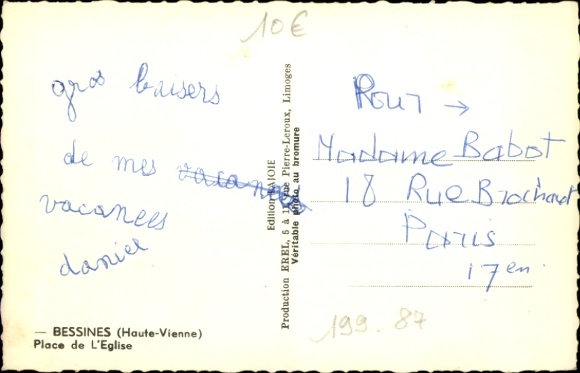 10€
gros baisers
de mes vacances
vacances
daniel
— BESSINES (Haute-Vienne)
Place de L'Eglise
Production EREL, 5 à Rue Pierre-Leroux, Limoges
Véritable photo au bromure
Pour →
Madame Babot
18 Rue Brochant
Paris
17 en
199.87